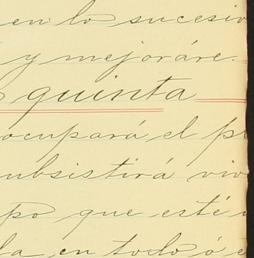 en lo sucesiv
y mejoráre.
quinta
ocupará el p
ubsistirá viv
po que esté
la en todo ó e